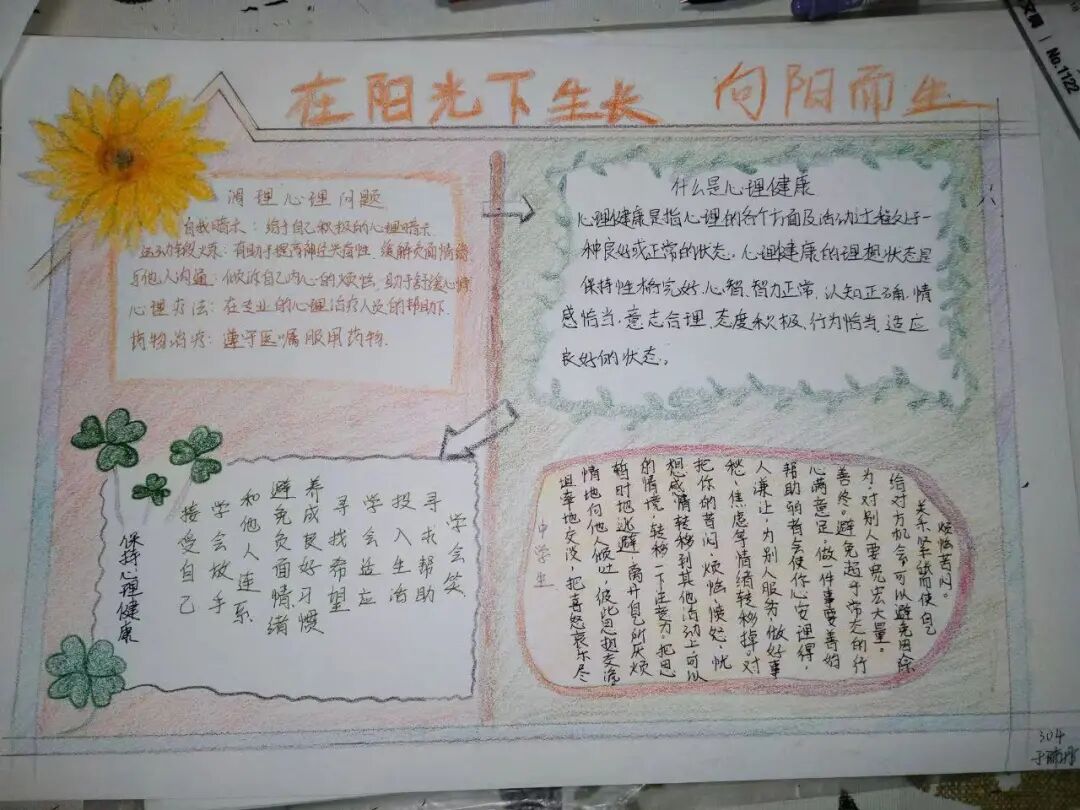 在阳光下生长 向阳而生
调理心理问题
自我暗示：给予自己积极的心理暗示
运动锻炼：有助于提高神经兴奋性，缓解负面情绪
与他人沟通：倾诉自己内心的烦恼，助于舒缓心情
心理疗法：在专业的心理治疗人员的帮助下.
药物治疗：遵守医嘱服用药物.
什么是心理健康
心理健康是指心理的各个方面及活动过程处于一
种良好或正常的状态。心理健康的理想状态是
保持性格完好、心智、智力正常、认知正确、情
感恰当、意志合理、态度积极、行为恰当、适应
良好的状态。
保持心理健康
接受自己
学会放手
和他人连系
避免负面情绪
养成良好习惯
寻找希望
学会适应
投入生活
寻求帮助
学会笑
中学生
坦率地交谈，把喜怒哀乐尽
情地向他人倾吐，彼此思想交流
暂时地逃避，离开自己所厌烦
的情境，转移一下注意力，把思
想感情转移到其他活动上，可以
把你的苦闷、烦恼、愤怒、忧
愁、焦虑等情绪转移掉。对
人谦让，为别人服务，做好事
帮助弱者会使你心安理得，
心满意足，做一件事要善始
善终。避免超乎常态的行
为，对别人要宽宏大量。
给对方机会，可以避免因际
关系紧张而使自己
烦恼苦闷。
304
No.1122